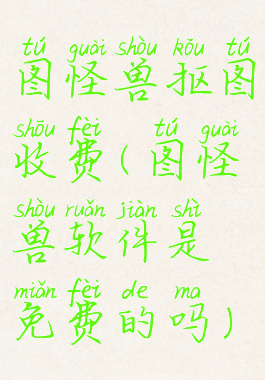 tú guài shòu kōu tú
图怪兽抠图
shōu fèi tú guài
收费(图怪
shòu ruǎn jiàn shì
兽软件是
miǎn fèi de ma
免费的吗)